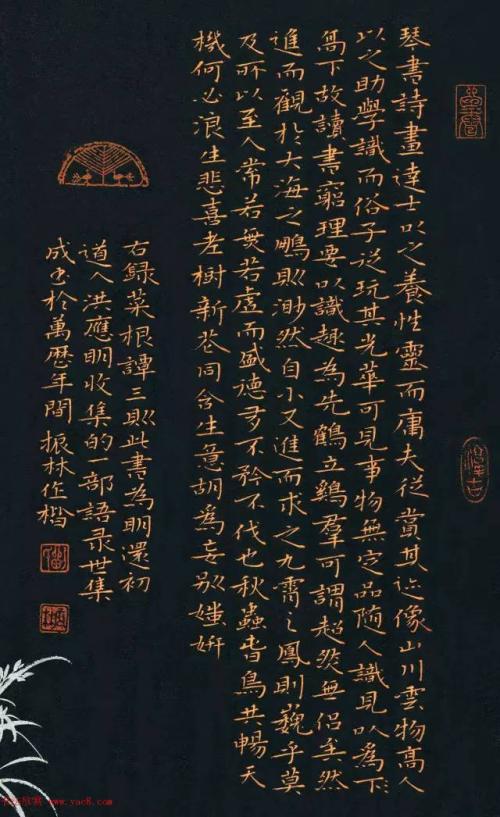 琴書詩畫達士以之養性靈而庸夫従賞其迹像山川雲物高人
以之助學識而俗子従玩其光華可見事物無定品隨人識見以爲下
高下故讀書窮理要以識趣為先鶴立鷄羣可謂超然無侶矣然
進而觀於大海之鵬則渺然自小又進而求之九霄之鳳則巍乎莫
及所以至人常若無若虛而盛德多不矜不伐也秋蟲春鳥共暢天
機何必浪生悲喜老樹新花同含生意胡爲妄別媸妍
右録菜根譚三則此書為明還初
道人洪應明收集的一部語录世集
成書於萬歷年間振林作楷
www.yac8.com